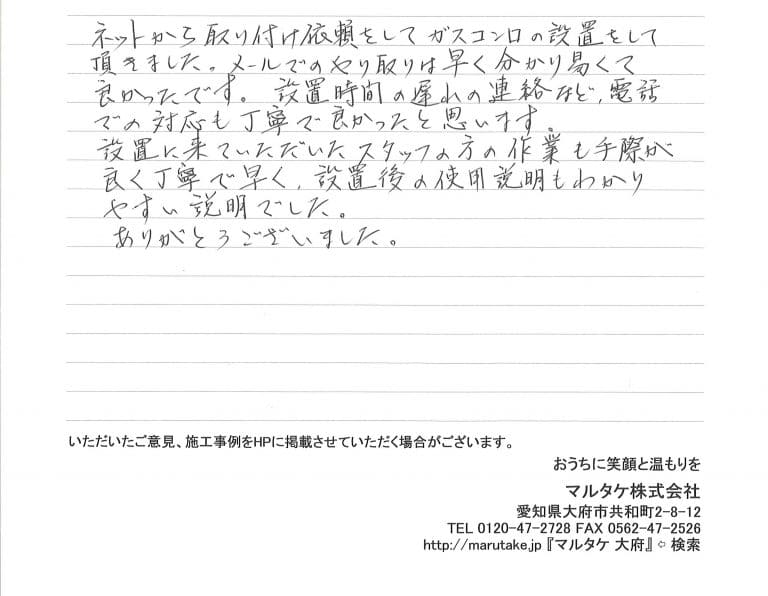 ネットから取り付け依頼をしてガスコンロの設置をして
頂きました。メールでのやり取りは早く分かり易くて
良かったです。設置時間の遅れの連絡など、電話
での対応も丁寧で良かったと思います。
設置に来ていただいたスタッフの方の作業も手際が
良く丁寧で早く、設置後の使用説明もわかり
やすい説明でした。
ありがとうございました。
いただいたご意見、施工事例をHPに掲載させていただく場合がございます。
おうちに笑顔と温もりを
マルタケ株式会社
愛知県大府市共和町2-8-12
TEL 0120-47-2728 FAX 0562-47-2526
http://marutake.jp『マルタケ 大府』⇦ 検索